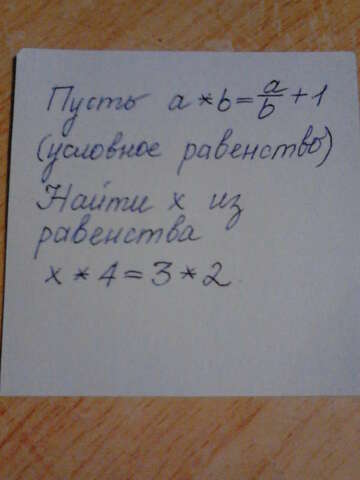 Пусть a * b = a/b + 1
(условное равенство)
Найти x из
равенства
x * 4 = 3 * 2.